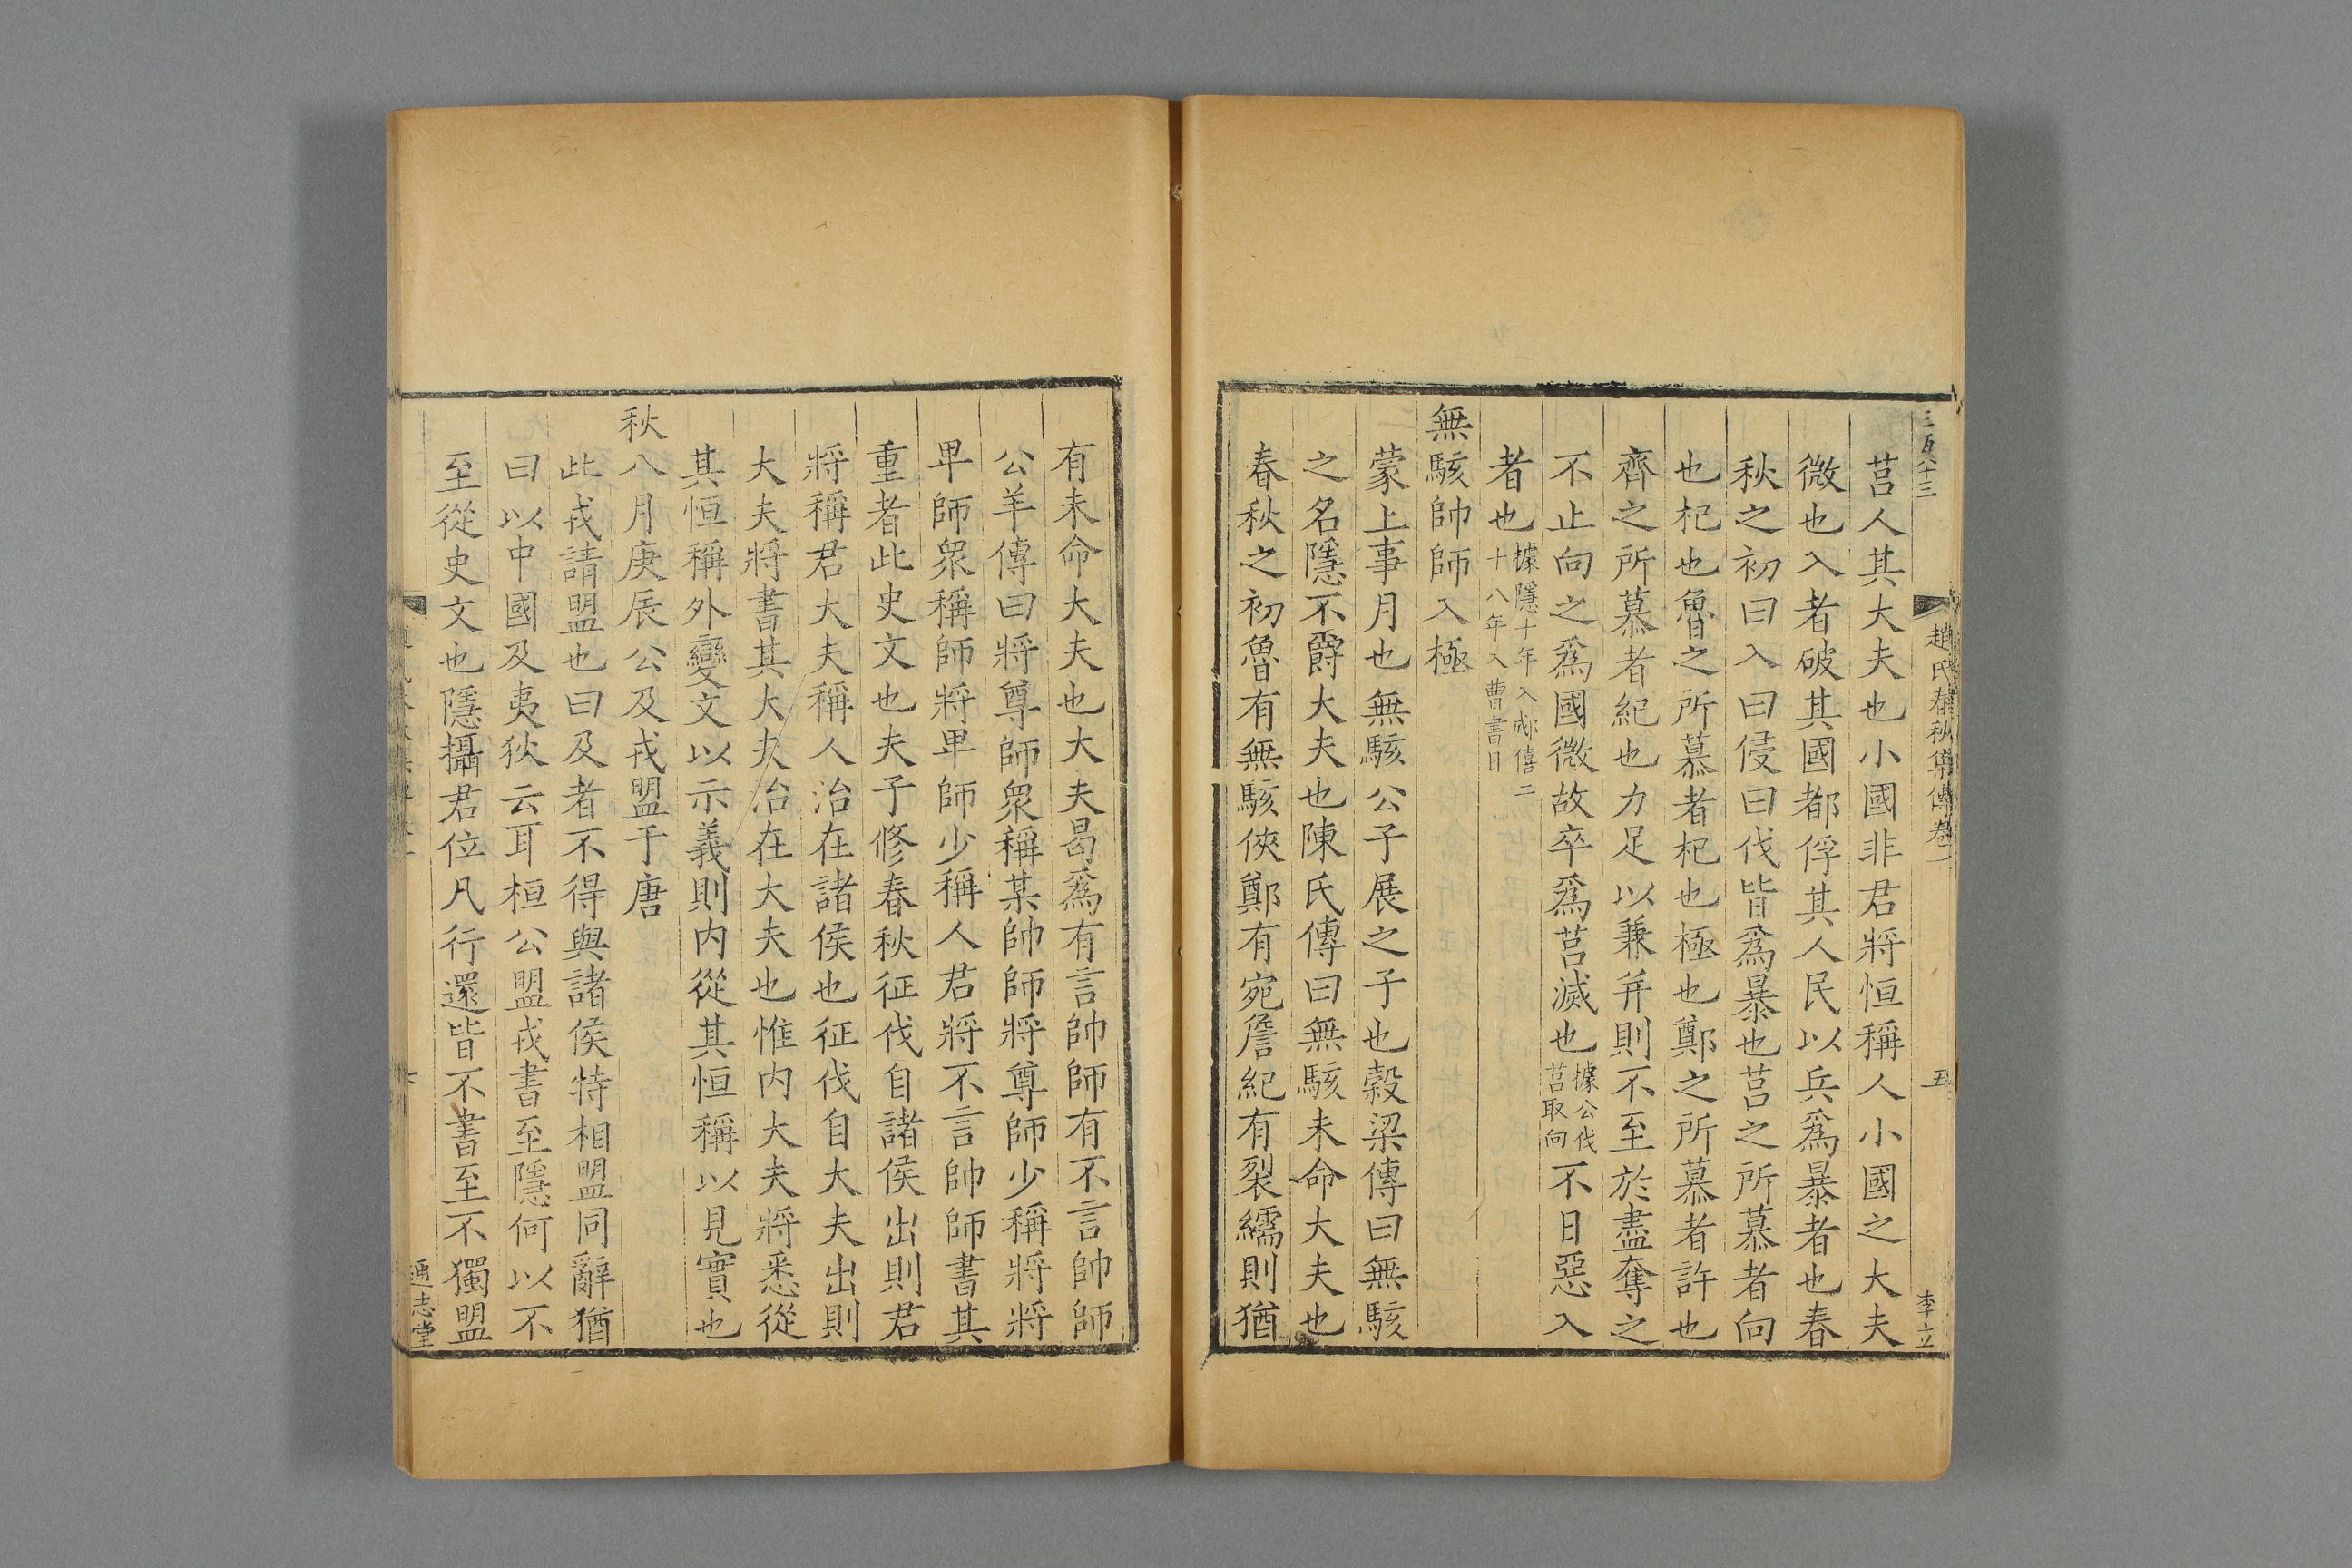 三百八十三
趙氏春秋集傳卷一
五
李立
莒人其大夫也小國非君將恒稱人小國之大夫
微也入者破其國都俘其人民以兵爲暴者也春
秋之初曰入曰侵曰伐皆爲暴也莒之所慕者向
也杞也魯之所慕者杞也極也鄭之所慕者許也
齊之所慕者紀也力足以兼并則不至於盡奪之
不止向之爲國微故卒爲莒滅也據公伐莒取向不日惡入
者也據隱十年入郕僖二十八年入曹書日
無駭帥師入極
蒙上事月也無駭公子展之子也榖梁傳曰無駭
之名隱不爵大夫也陳氏傳曰無駭未命大夫也
春秋之初魯有無駭俠鄭有宛詹紀有裂繻則猶
有未命大夫也大夫曷爲有言帥師有不言帥師
公羊傳曰將尊師衆稱某帥師將尊師少稱將將
卑師衆稱師將卑師少稱人君將不言帥師書其
重者此史文也夫子修春秋征伐自諸侯出則君
將稱君大夫稱人治在諸侯也征伐自大夫出則
大夫將書其大夫治在大夫也惟内大夫將悉從
其恒稱外變文以示義則内從其恒稱以見實也
秋八月庚辰公及戎盟于唐
此戎請盟也曰及者不得與諸侯特相盟同辭猶
曰以中國及夷狄云耳桓公盟戎書至隱何以不
至從史文也隱攝君位凡行還皆不書至不獨盟
通志堂